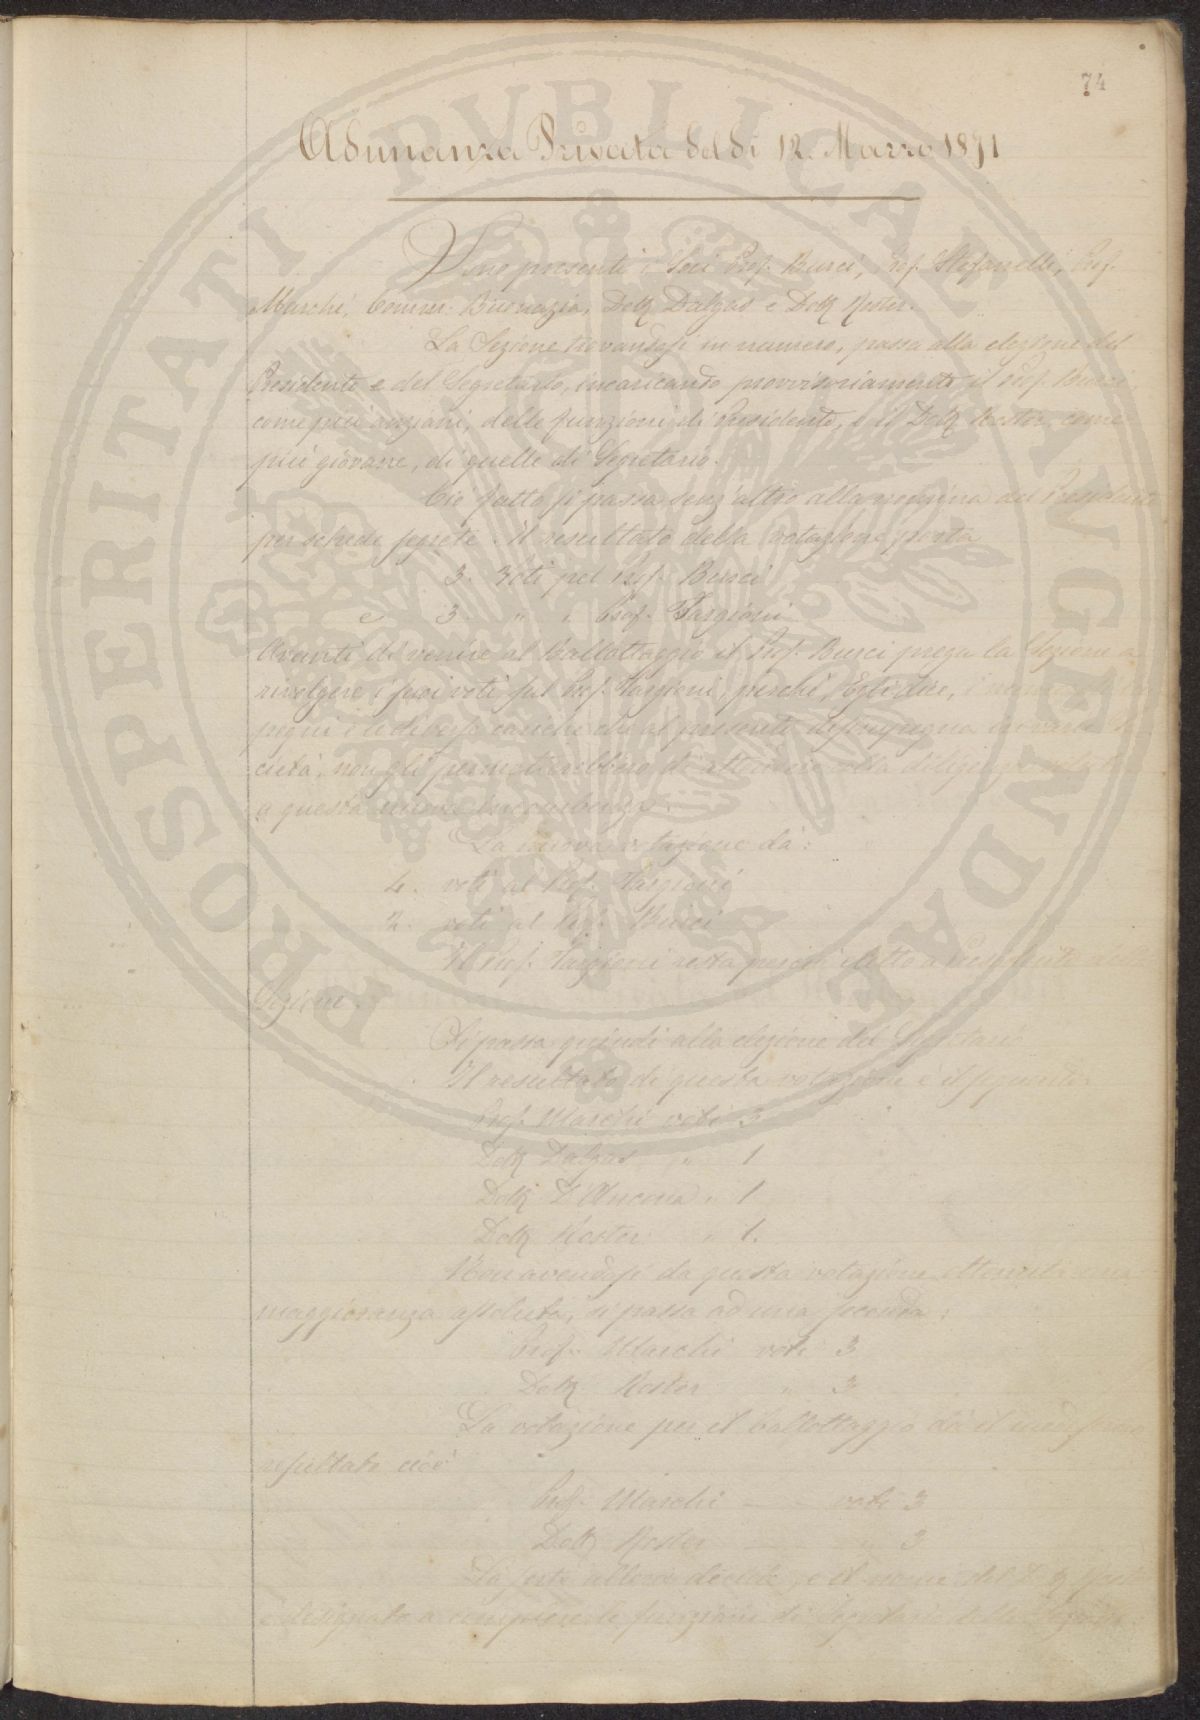 74
Adunanza Privata del dì 12. Marzo 1871
Sono presenti i Soci Prof. Burci, Prof. Stefanelli, Prof.
Marchi, Comm. Buonazia, Dott. Dalgas e Dott. Roster.
La Sezione trovandosi in numero, passa alla elezione del
Presidente e del Segretario, incaricando provvisoriamente il Prof. Burci
come più anziani, delle funzioni di Presidente, e il Dott. Roster, come
più giovane, di quelle di Segretario.
Ciò fatto si passa senz'altro alla nomina del Presidente
per schede segrete. Il resultato della votazione porta
3. Voti pel Prof. Burci
e 3 " " Prof. Targioni
Avanti di venire al ballottaggio il Prof. Burci prega la Sezione a
rivolgere i suoi voti sul Prof. Targioni, perchè, Egli dice,
pegni e le diverse cariche che al presente disimpegna in varie So
cietà, non gli permetterebbero di attendere colla diligenza
a questa nuova incumbenza.
La nuova votazione dà:
4. voti al Prof. Targioni
2. voti al Prof. Burci
Il Prof. Targioni resta perciò eletto a Presidente della
Sezione.
Si passa quindi alla elezione del Segretario
Il resultato di questa votazione è il seguente:
Prof. Marchi voti 3
Dott. Dalgas " 1
Dott. D'Ancona " 1
Dott. Roster " 1.
Non avendosi da questa votazione ottenuta una
maggioranza assoluta, si passa ad una seconda:
Prof. Marchi voti 3
Dott. Roster " 3
La votazione per il ballottaggio dà il medesimo
resultato cioè
Prof. Marchi — voti 3
Dott. Roster — " 3
La sorte allora decide, e il nome del Dott. Roster
è designato a compiere le funzioni di Segretario della Sezione.
PROSPERITATI PVBLICAE AVGENDAE